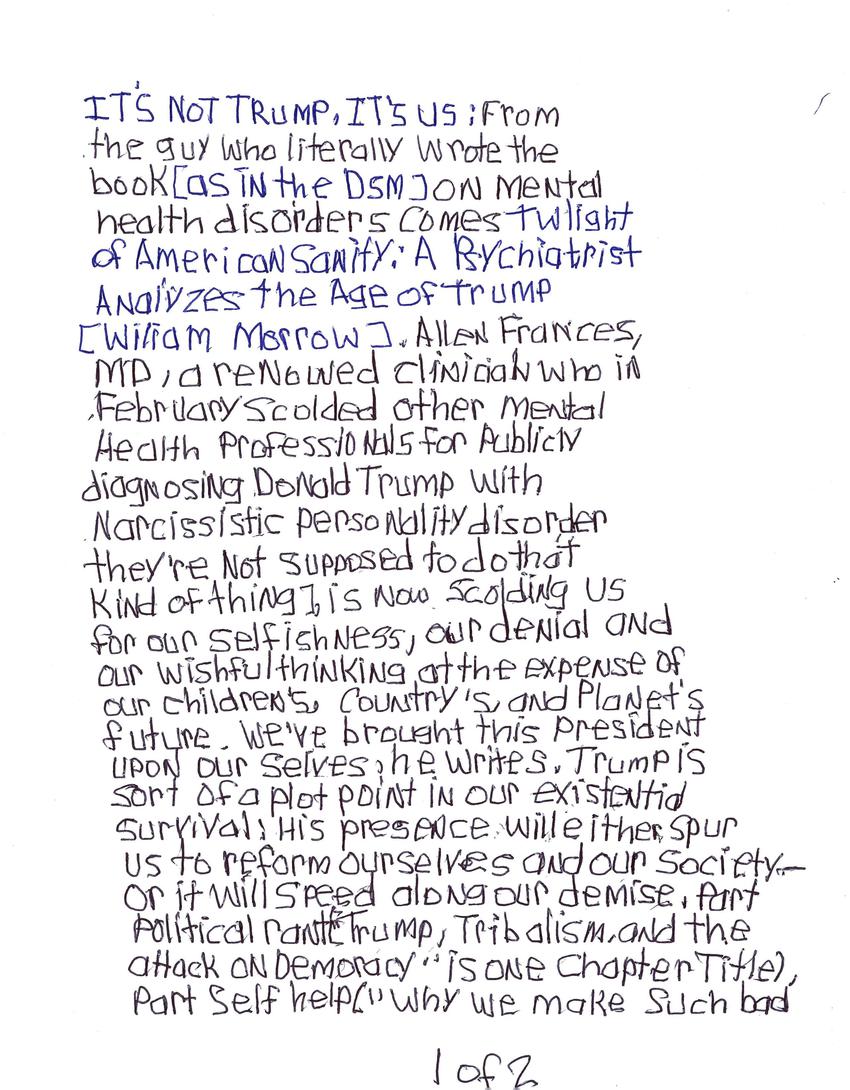 IT'S NOT TRUMP, IT'S US : From
the guy who literally wrote the
book [as in the DSM] on mental
health disorders comes twlight
of American Sanity: A Psychiatrist
Analyzes the Age of trump
[William Morrow]. Allen Frances,
MD, a renowed clinician who in
February scolded other mental
Health Professionals for Publicly
diagnosing Donald Trump with
Narcissistic personality disorder
they're Not supposed to do that
Kind of thing], is now scolding us
for our selfishness, our denial and
our wishful thinking at the expense of
our children's, Country's, and Planet's
future. We've brought this president
upon our selves, he writes. Trump is
sort of a plot point in our existential
survival: His presence will either spur
us to reform ourselves and our society—
or it will speed along our demise. Part
Political rant(“Trump, Tribalism, and the
attack on Demoracy” is one Chapter Title),
Part Self help(“Why we make such bad
1 of 2